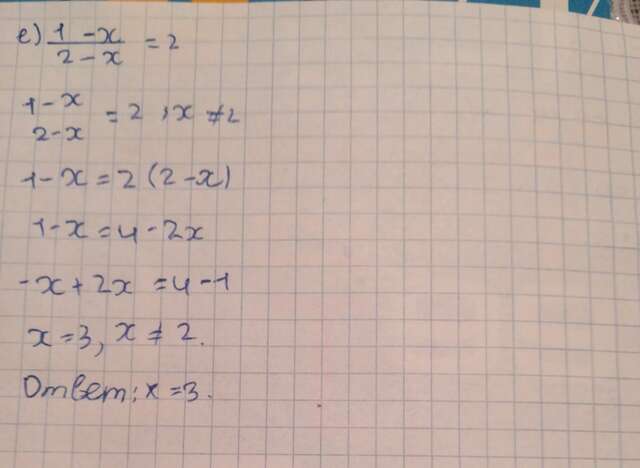 е) 1 - x / 2 - x = 2
1 - x / 2 - x = 2 , x ≠ 2
1 - x = 2 (2 - x)
1 - x = 4 - 2x
- x + 2x = 4 - 1
x = 3, x ≠ 2.
Ответ: x = 3.